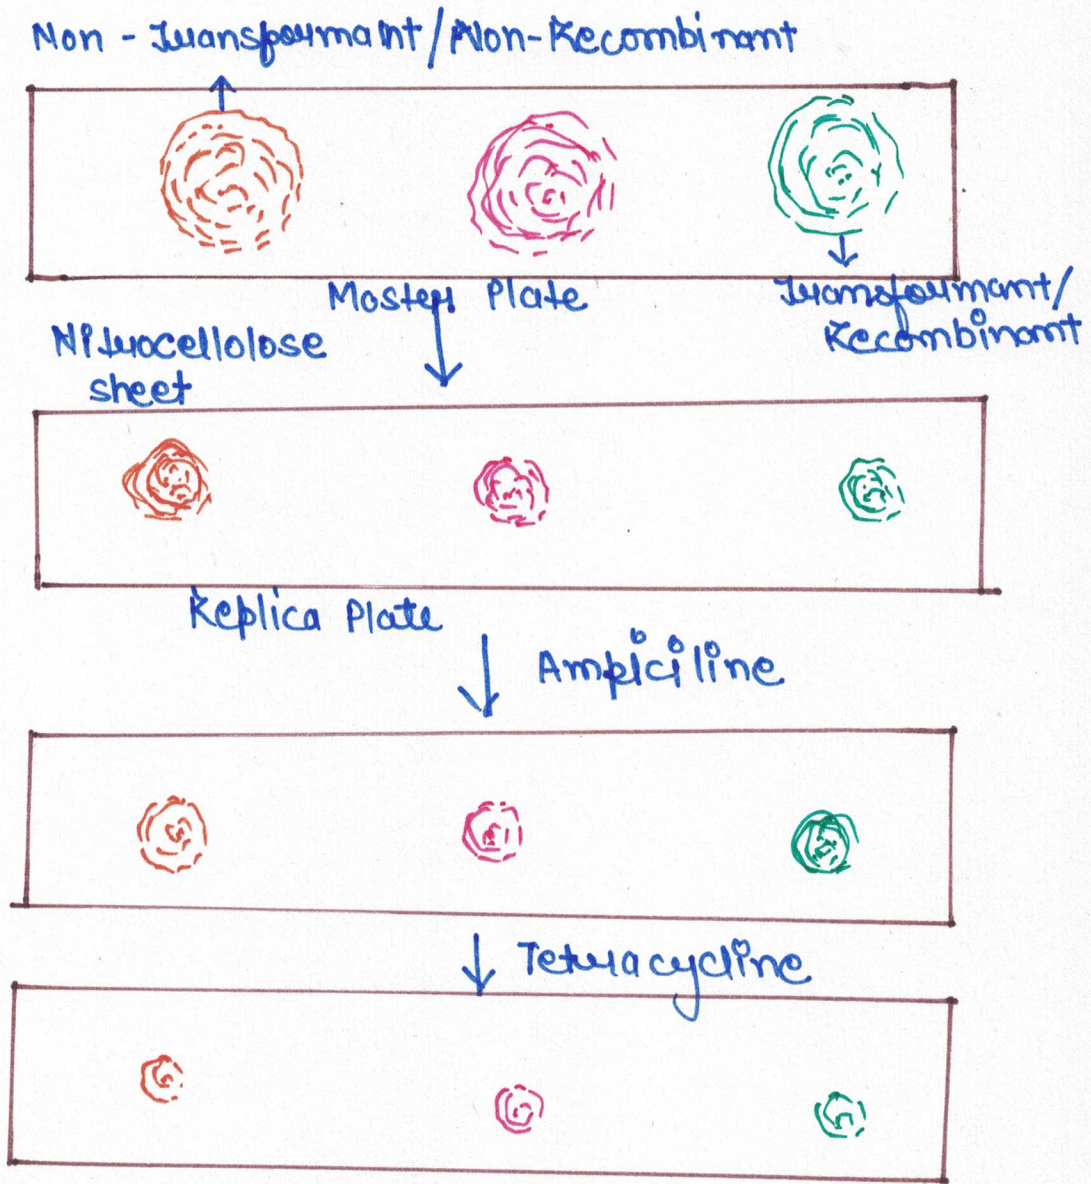 Non - Transformant/Non-Recombinant
Master Plate
Transformant/
Recombinant
Nitrocellolose
sheet
Replica Plate
Ampiciline
Tetracycline